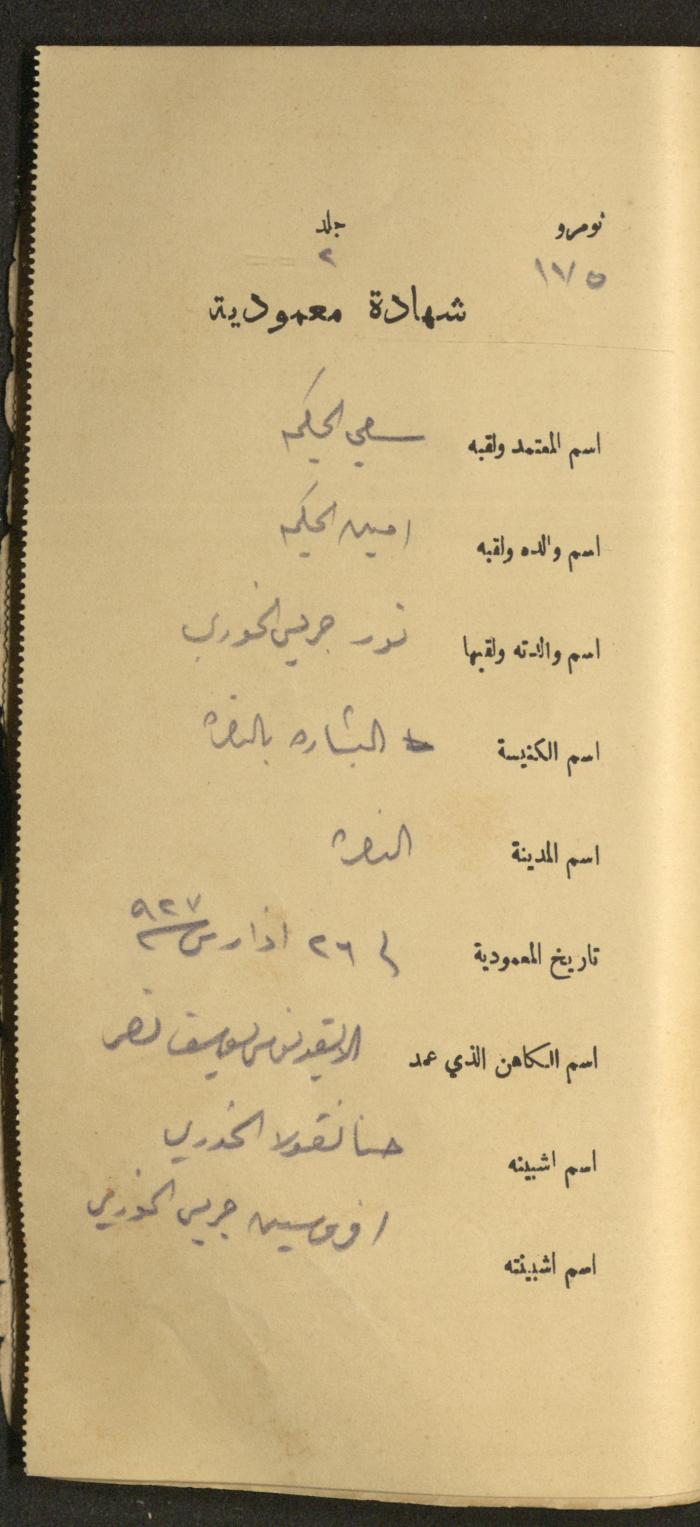 نومرو جلد
١٧٥ ٢
شهادة معمودية
اسم المعتمد ولقبه الحكيم
اسم والده ولقبه امين الحكيم
اسم والدته ولقبها نور جريس الخوري
اسم الكنيسة البشاره بالناصرة
اسم المدينة الناصرة
تاريخ المعمودية في ٢٦ اذار سنة ٩٢٧
اسم الكاهن الذي عمد يوسف نصر
اسم اشبينه حنا نقولا الخوري
اسم اشبينته جريس الخوري